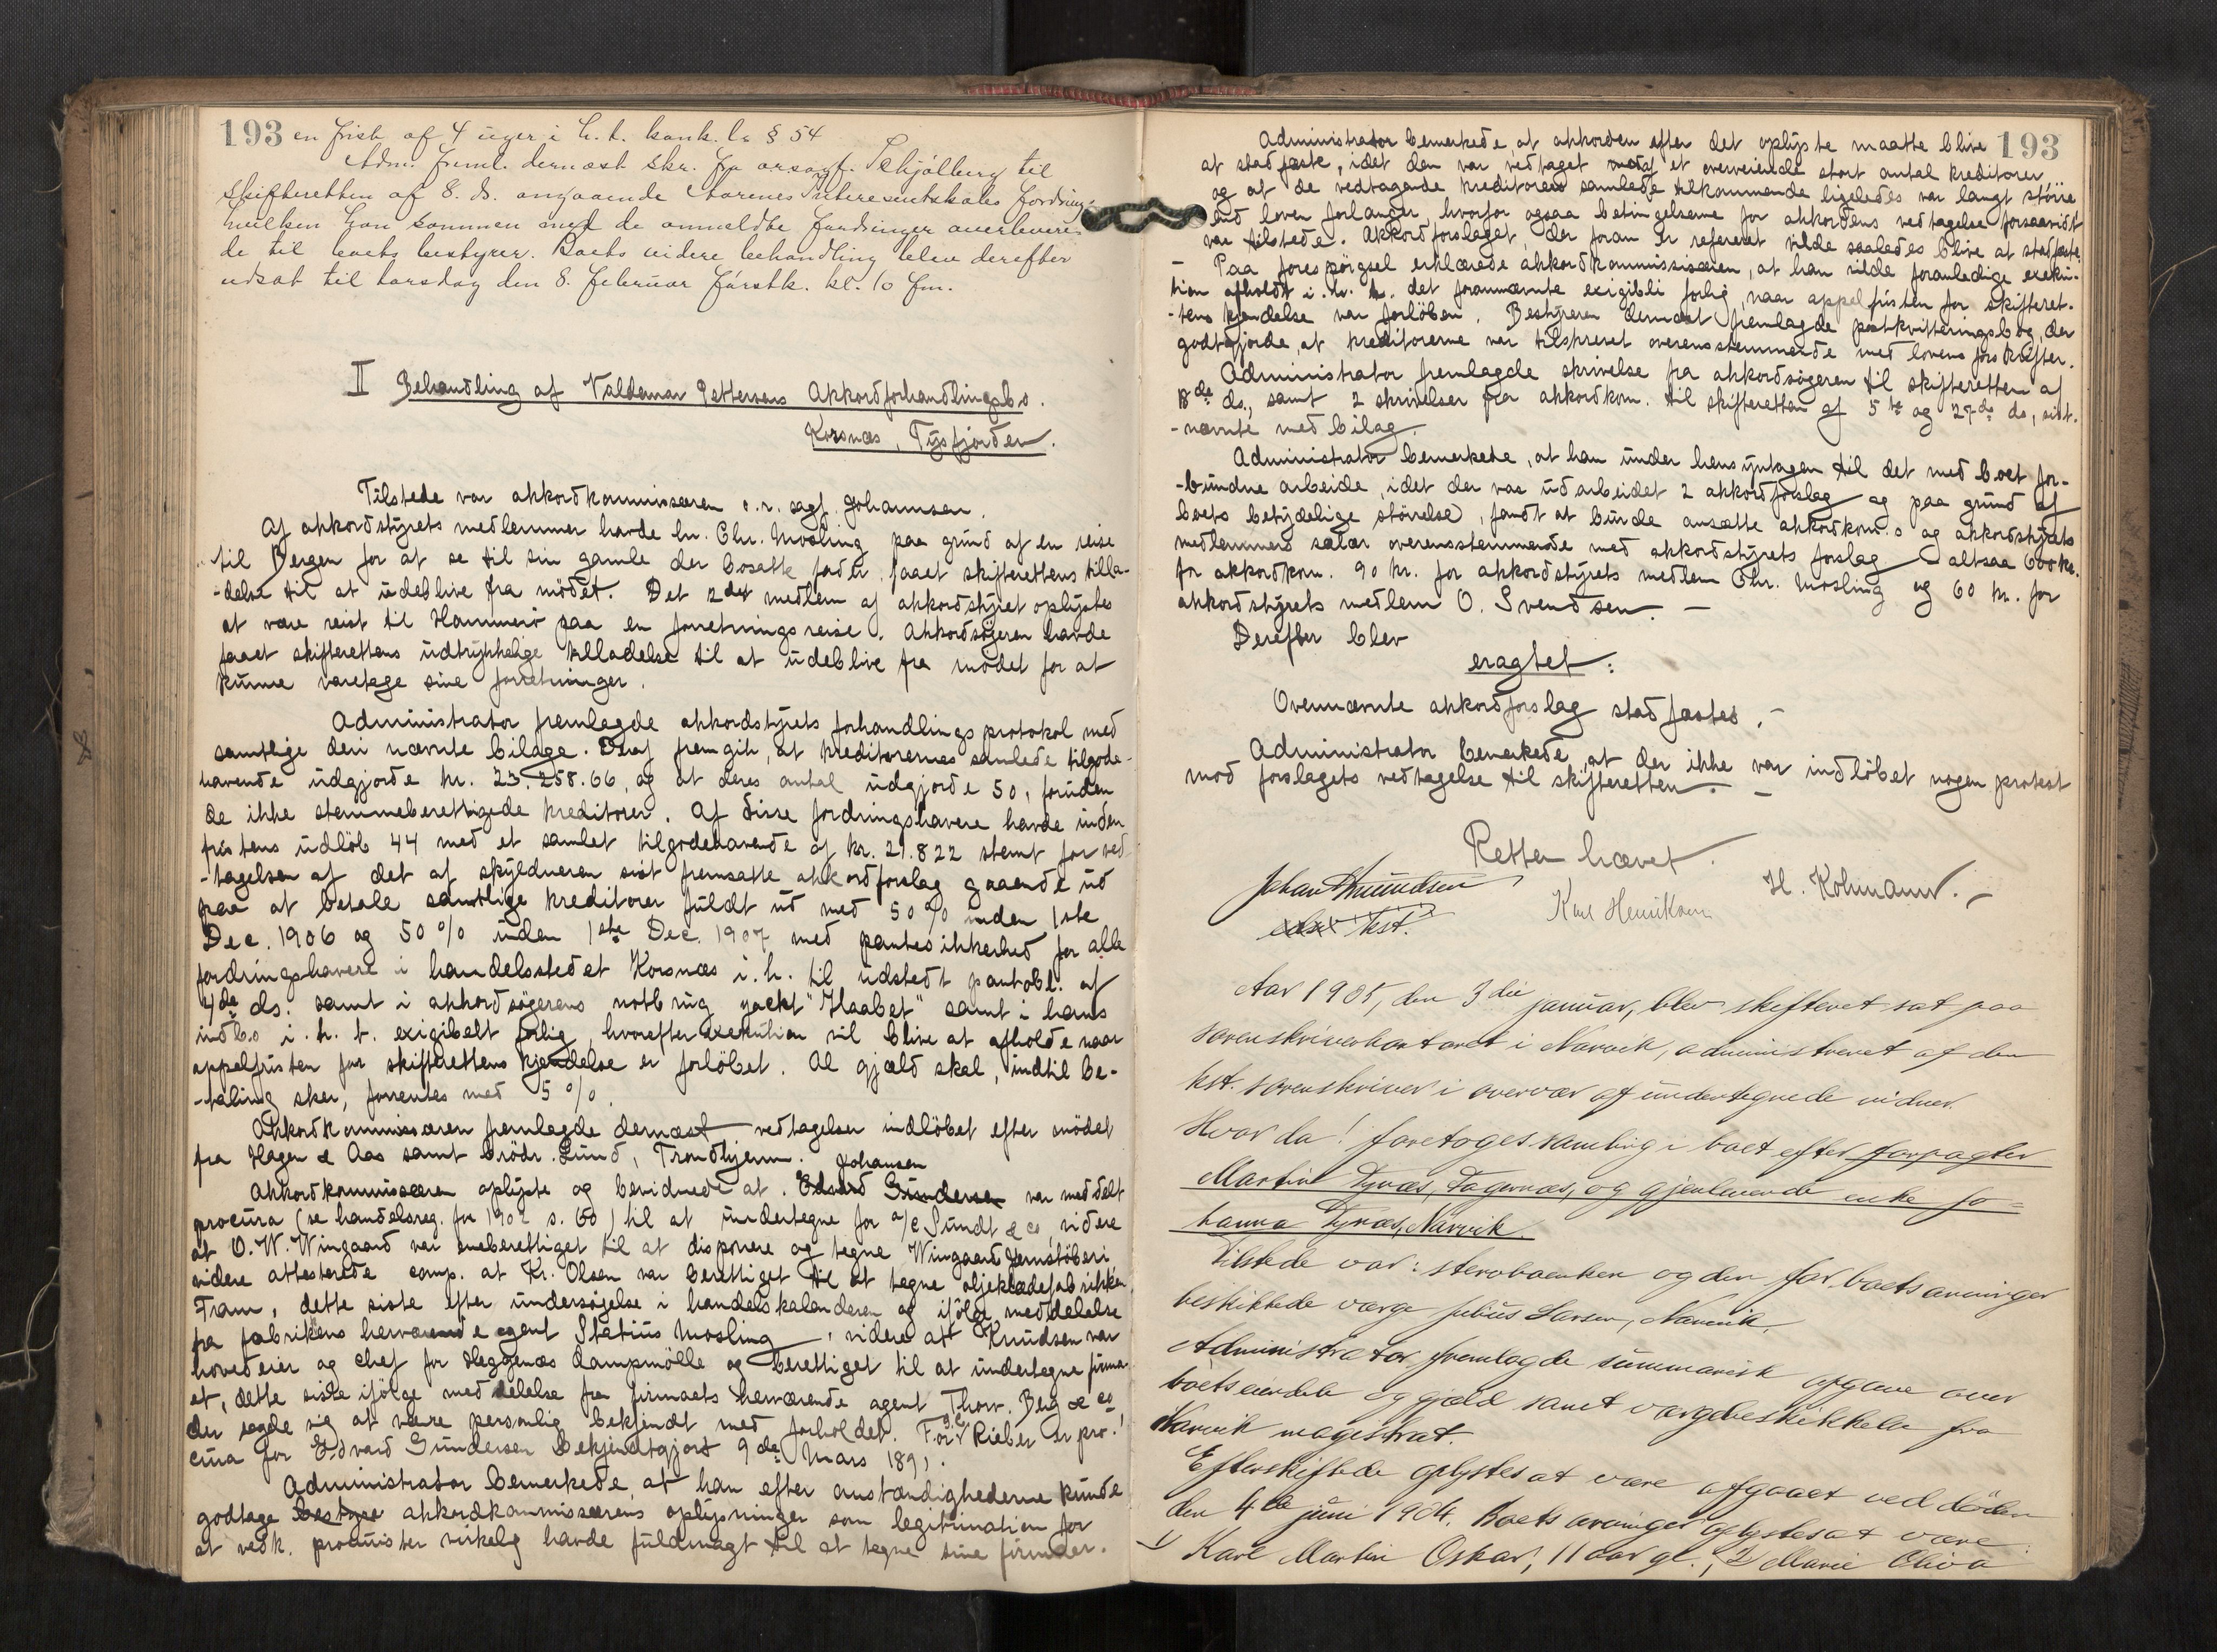 193 en frist af 4 uger i h. t. konk. l. § 54
Adm. freml. dernæst skr. fra orsagf. Schjölberg til
skifteretten af 8. ds. angaaende fordring
hvilken han sammen med de anmeldte fordringer overlevere-
de til boets bestyrer. Boets videre behandling blev derefter
udsat til torsdag den 8. februar førstk. kl. 10 fm.
II Behandling af Valdemar Pettersens Akkordforhandlingsbo.
Korsnæs, Tysfjorden.
Tilstede var akkordkommissæren o.r. sagf. Johannsen.
Af akkordstyrets medlemmer havde hr. Chr. Mosling paa grund af en reise
til Bergen for at se til sin gamle der bosatte fader faaet skifterettens tilla-
-delse til at udeblive fra mödet. Det 2det medlem af akkordstyret oplystes
at være reist til Hammerö paa en forretningsreise. Akkordsögeren havde
faaet skifterettens udtrykkelige tilladelse til at udeblive fra mödet for at
kunne varetage sine forretninger.
Administrator fremlagde akkordstyrets forhandlingsprotokol med
samtlige deri nævnte bilage. Deraf fremgik, at kreditorernes samlede tilgode-
havende udgjorde kr. 23.258.66, og at deres antal udgjorde 50, foruden
de ikke stemmeberettigede kreditorer. Af disse fordringshavere havde inden
fristens udlöb 44 med et samlet tilgodehavende af kr. 21.822 stemt for ved-
-tagelsen af det af skyldneren sist fremsatte akkordforslag gaaende ud
paa at betale samtlige kreditorer fuldt ud med 50 % inden 1ste
Dec. 1906 og 50 % inden 1ste Dec. 1907 med pantesikkerhed for alle
fordringshavere i handelsstedet Korsnæs i.h. til udstedt pantobl. af
4de ds. samt i akkordsögerens notbrug yackt "Haabet" samt i hans
indbo i. h. t. exigibelt forlig, hvorefter exekution vil blive at afholde naar
appelfristen for skifterettens kjendelse er forlöbet. Al gjæld skal, indtil be-
-taling sker, forrentes med 5 %.
Akkordkommissæren fremlagde dernæst vedtagelser indlöbet efter mödet
fra Hagen & Aas samt Brödr. Lund, Trondhjem.
Johansen
Akkordkommissæren oplyste og bevidnede at Edvard Gundersen var meddelt
procura (se handelsreg. for 1902 s. 60) til at undertegne for a/s Sundt & co, videre
at O. W. Wingaard var eneberettiget til at disponere og tegne Wingaards Jernstöberi
videre attesterede comp. at Kr. Olsen var berettiget til at tegne oljeklædefabrikken
Fram, dette siste efter undersögelse i handelskalenderen og ifölge meddelelse
fra fabrikens herværende agent Statius Mosling, videre at Knudsen var
hovedeier og chef for Heggenæs dampmölle og berettiget til at undertegne firma-
et, dette siste ifölge meddelelse fra firmaets herværende agent Thorv. Berg & co
der sagde sig at være personlig bekjendt med forholdet. For G.C. Rieber er pro-
cura for Edvard Gundersen bekjendtgjort 9de Mars 1891.
Administrator bemerkede, at han efter omstændighederne kunde
godtage bestyre akkordkommissærens oplysninger som legitimation for
at vedk. procurister virkelig havde fuldmagt til at tegne sine firmaer.
Administrator bemerkede, at akkorden efter det oplyste maatte blive 193
at stadfæste, idet den var vedtaget af et overveiende stort antal kreditorer,
og at de vedtagende kreditorers samlede tilkommende ligeledes var langt större
end loven forlanger, hvorfor ogsaa betingelserne for akkordens vedtagelse forsaavidt
var tilstede. Akkordforslaget, der foran er refereret vilde saaledes blive at stadfæste.
– Paa forespörgsel erklærede akkordkommissæren, at han vilde foranledige exeku-
tion afholdt i. h. t. det forannævnte exigibli forlig, naar appelfristen for skifteret-
-tens kjendelse var forlöben. Bestyreren dernæst fremlagde postkvitteringsbog, der
godtgjorde, at kreditorerne var tilskrevet overensstemmende med lovens forskrifter.
Administrator fremlagde skrivelse fra akkordsögeren til skifteretten af
18de ds., samt 2 skrivelser fra akkordkom. til skifteretten af 5te og 27de ds, sist-
-nævnte med bilag.
Administrator bemerkede, at han under hensyntagen til det med boet for-
-bundne arbeide, idet der var udarbeidet 2 akkordforslag og paa grund af
boets betydelige störrelse, fandt at burde ansætte akkordkom.s og akkordstyrets
medlemmers salær overensstemmende med akkordstyrets forslag – altsaa 600 kr.
for akkordkom. 90 kr. for akkordstyrets medlem Chr. Mosling og 60 kr. for
akkordstyrets medlem O. Svendsen. –
Derefter blev
eragtet:
Ovennævnte akkordforslag stadfæstes. –
Administrator bemerkede, at der ikke var indlöbet nogen protest
mod forslagets vedtagelse til skifteretten. –
Retten hævet.
Johan Amundsen
Karl Henriksen
H. Kohmann. –
kst.
Aar 1905, den 3die januar, blev skifteret sat paa
sorenskriverkontoret i Narvik, administreret af den
kst. sorenskriver i overvær af undertegnede vidner.
Hvor da! foretoges samling i boet efter forpagter
Martin Tynæs, Fagernæs, og gjenlevende enke Jo-
hanna Tynæs, Narvik.
Tilstede var: stervboenken og den for boets arvinger
beskikkede værge Julius Larsen, Narvik.
Administrator fremlagde summarisk opgave over
boets eiendele og gjæld samt værgebeskikkelse fra
Narvik magistrat.
Efterskiftede oplystes at være afgaaet ved döden
den 4de juni 1904. Boets arvinger oplystes at være:
1) Karl Martin Oskar, 11 aar gl., 2 Marie Oliva